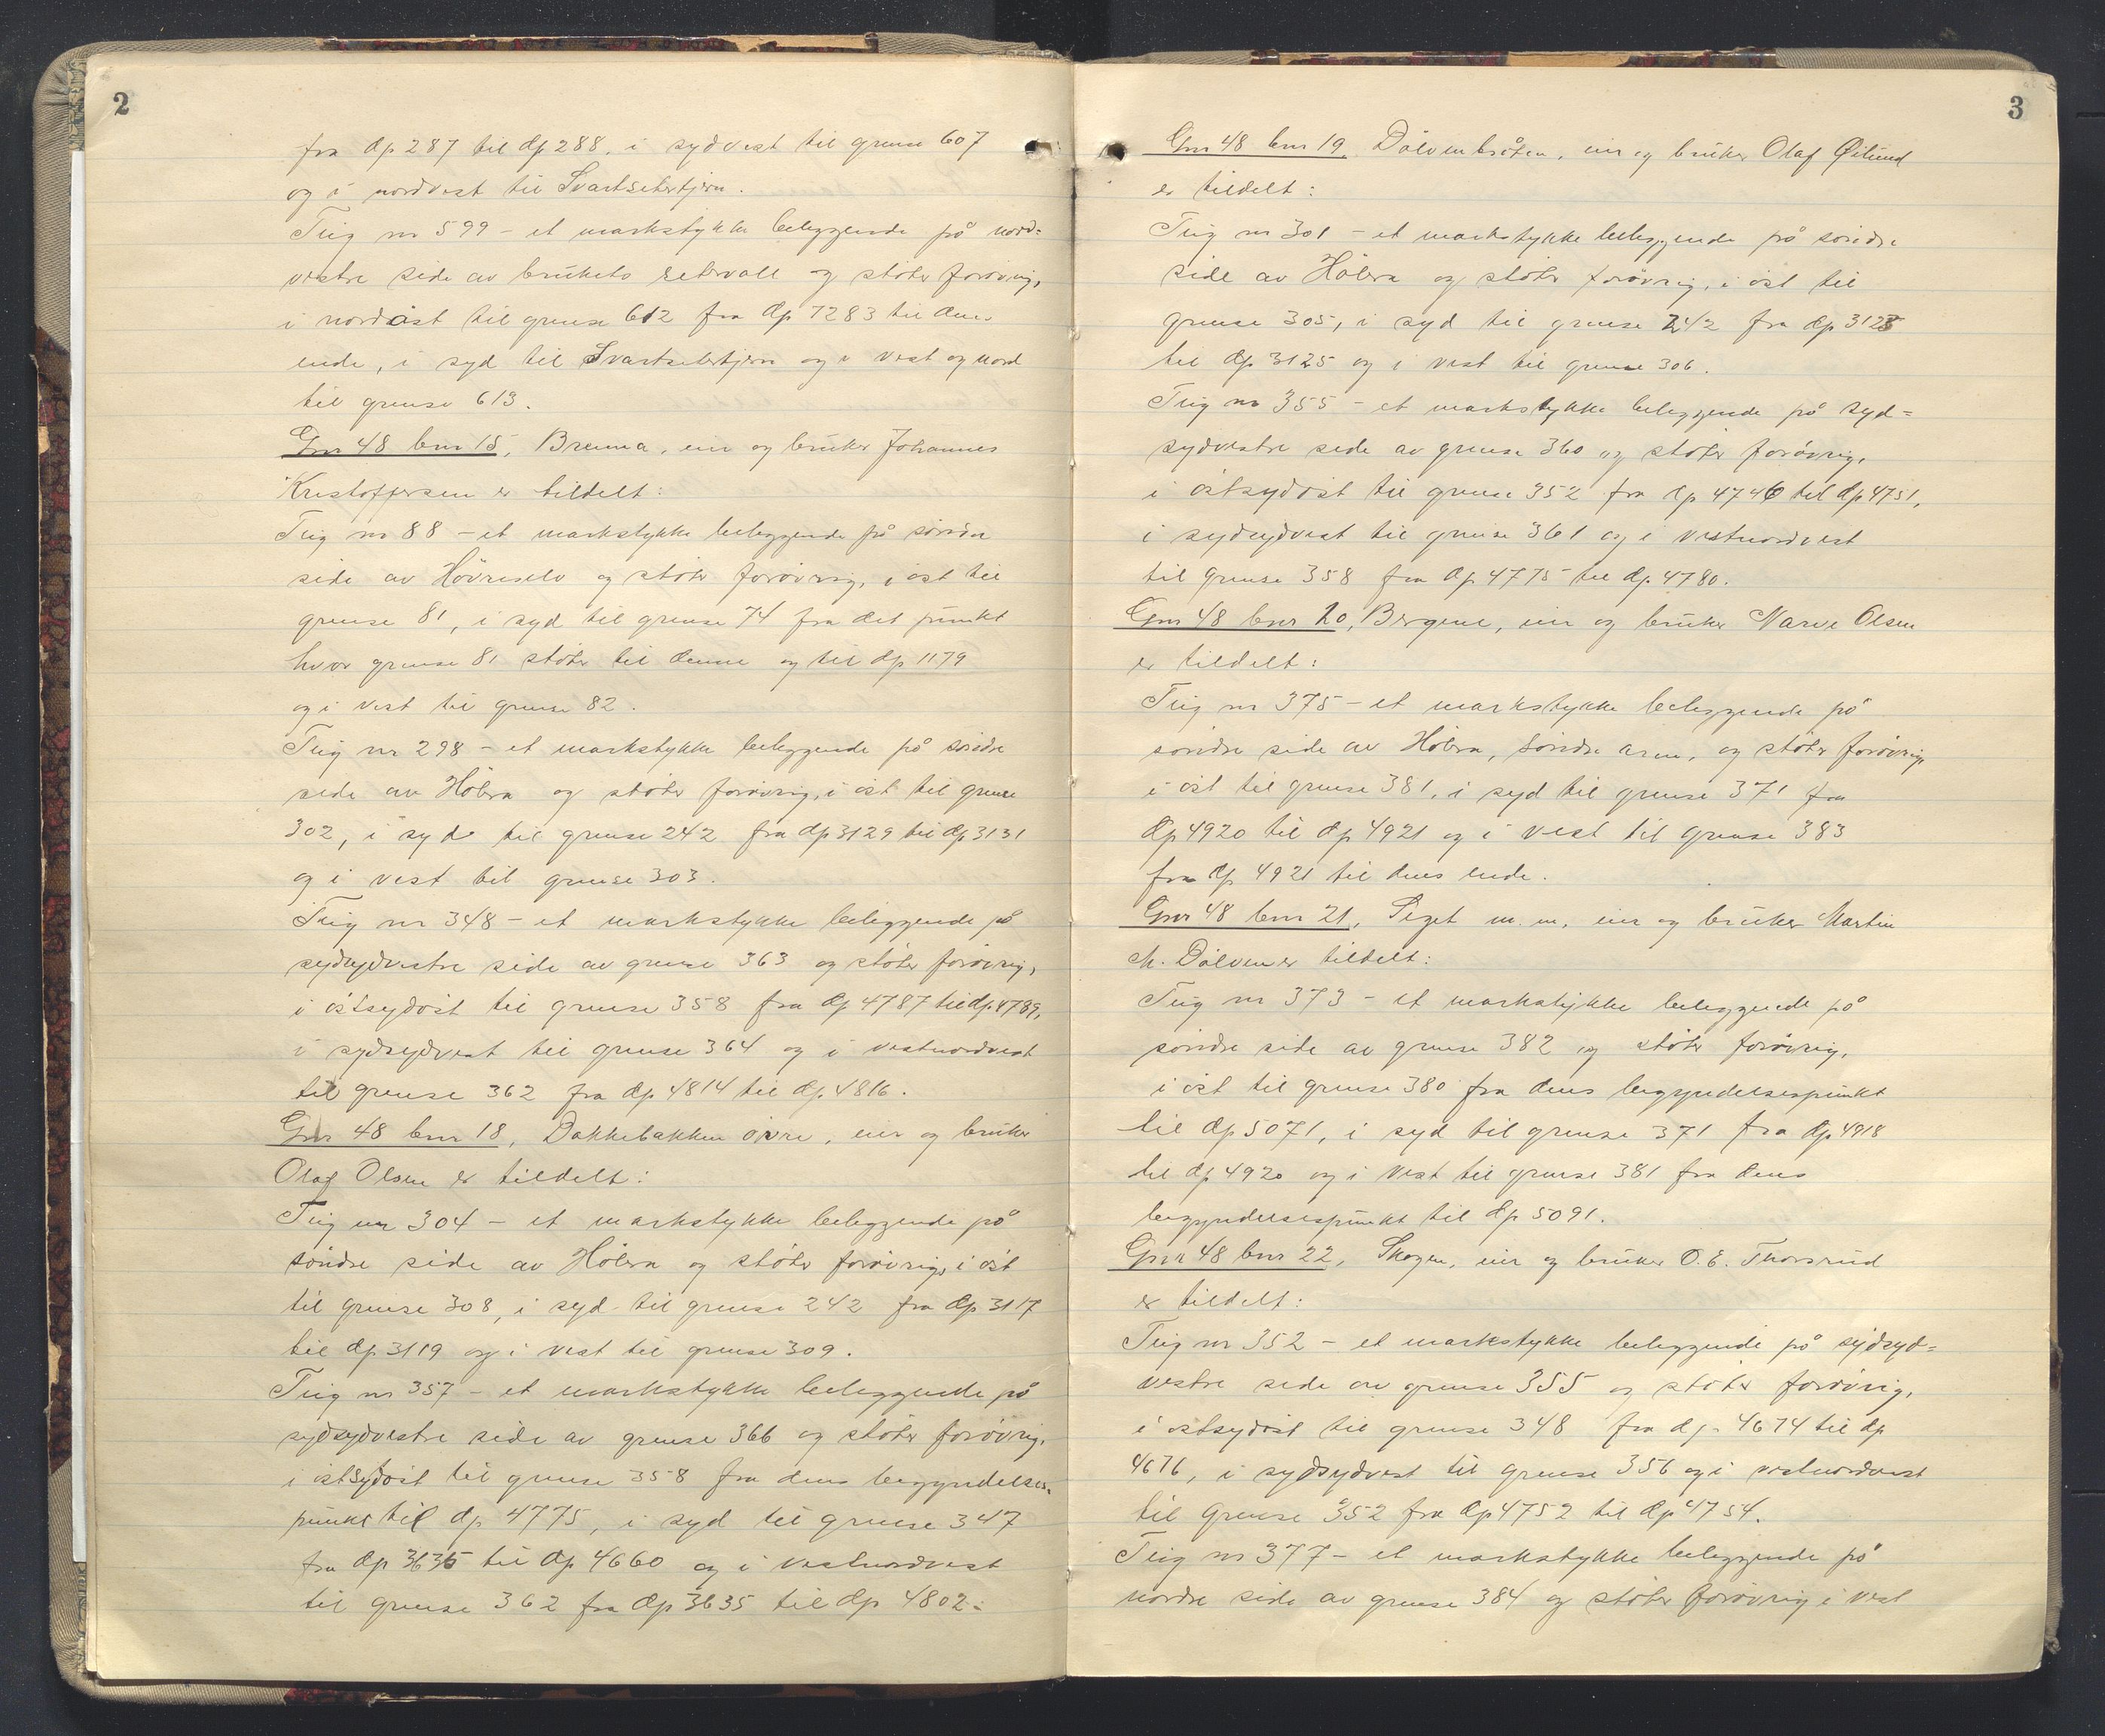 2
fra dp 287 til dp 288, i sydvest til grense 607
og i nordvest til Svartsetertjern.
Teig nr 599 - et markstykke beliggende på nord=
vestre side av brukets setervoll og støter forøvrig,
i nordøst til grense 612 fra dp 7283 til dens
ende, i syd til Svartsetertjern og i vest og nord
til grense 613.
Gnr 48 bnr 15, Brenna, eier og bruker Johannes
Kristoffersen er tildelt:
Teig nr 88 - et markstykke beliggende på søndre
side av Høvreselv og støter forøvrig, i øst til
grense 81, i syd til grense 74 fra det punkt
hvor grense 81 støter til denne og til dp 1179
og i vest til grense 82.
Teig nr 298 - et markstykke beliggende på søndre
side av Hølera og støter forøvrig, i øst til grense
302, i syd til grense 242 fra dp 3129 til dp 3131
og i vest til grense 303.
Teig nr 348 - et markstykke beliggende på
sydsydvestre side av grense 363 og støter forøvrig,
i østsydøst til grense 358 fra dp 4787 til dp. 4789,
i sydsydvest til grense 364 og i vestnordvest
til grense 362 fra dp 4814 til dp. 4816.
Gnr 48 bnr 18, Dokkebakken øvre, eier og bruker
Olaf Olsen er tildelt:
Teig nr 304 - et markstykke beliggende på
søndre side av Hølera og støter forøvrig, i øst
til grense 308, i syd til grense 242 fra dp 3117
til dp 3119 og i vest til grense 309.
Teig nr 357 - et markstykke beliggende på
sydsydvestre side av grense 366 og støter forøvrig,
i østsydøst til grense 358 fra dens begyndelses=
punkt til dp 4775, i syd til grense 347
fra dp 3635 til dp 4660 og i vestnordvest
til grense 362 fra dp 3635 til dp 4802.
3
Gnr 48 bnr 19, Dølvenbråten, eier og bruker Olaf Øilund
er tildelt:
Teig nr 301 - et markstykke beliggende på søndre
side av Hølera og støter forøvrig, i øst til
grense 305, i syd til grense 242 fra dp 3123
til dp 3125 og i vest til grense 306.
Teig nr 355 - et markstykke beliggende på syd=
sydvestre side av grense 360 og støter forøvrig,
i østsydøst til grense 352 fra dp 4746 til dp 4751,
i sydsydvest til grense 361 og i vestnordvest
til grense 358 fra dp 4775 til dp. 4780.
Gnr 48 bnr 20, Bergene, eier og bruker Narve Olsen
er tildelt:
Teig nr 375 - et markstykke beliggende på
søndre side av Hølera, søndre arm, og støter forøvrig,
i øst til grense 381, i syd til grense 371 fra
dp 4920 til dp 4921 og i vest til grense 383
fra dp 4921 til dens ende.
Gnr 48 bnr 21, Teget m.m, eier og bruker Martin
M. Dølven er tildelt:
Teig nr 373 - et markstykke beliggende på
søndre side av grense 382 og støter forøvrig,
i øst til grense 380 fra dens begyndelsespunkt
til dp 5071, i syd til grense 371 fra dp 4918
til dp 4920 og i vest til grense 381 fra dens
begyndelsespunkt til dp 5091.
Gnr 48 bnr 22, Skogen, eier og bruker O. E. Thorsrud
er tildelt:
Teig nr 352 - et markstykke beliggende på sydsyd=
vestre side av grense 355 og støter forøvrig,
i østsydøst til grense 348 fra dp. 4674 til dp
4676, i sydsydvest til grense 356 og i vestnordvest
til grense 352 fra dp 4752 til dp 4754.
Teig nr 377 - et markstykke beliggende på
nordre side av grense 384 og støter forøvrig i vest